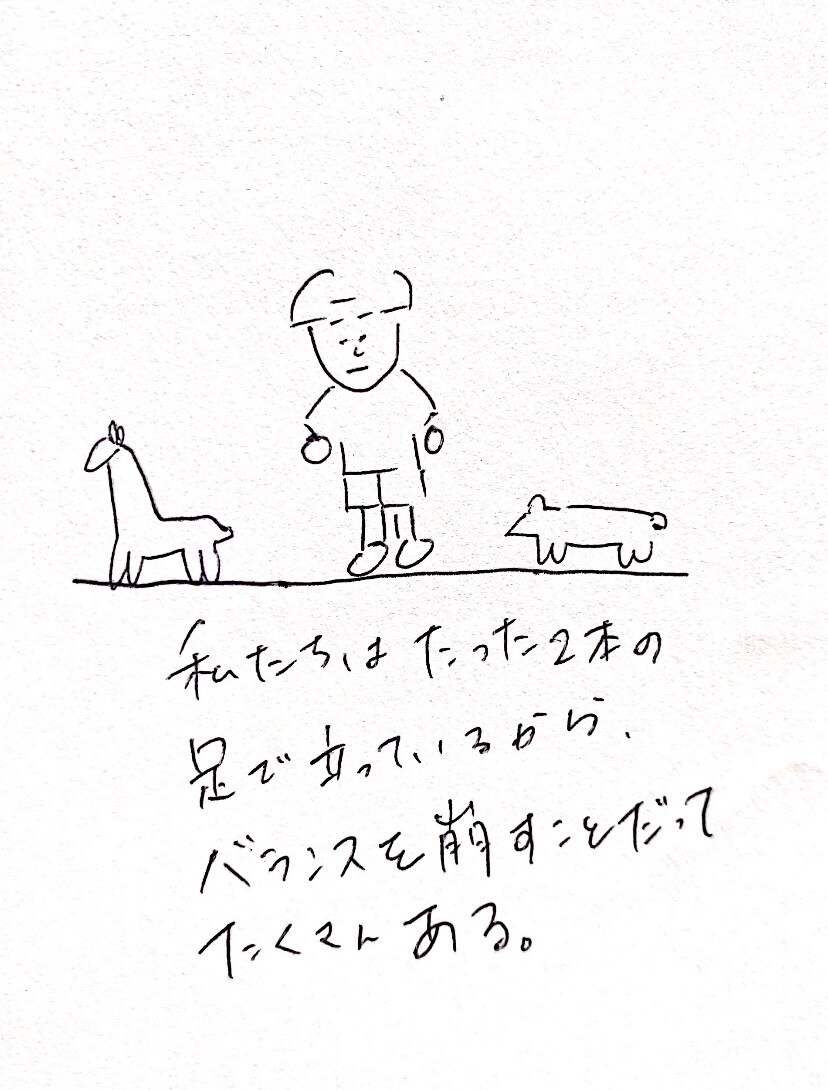 私たちはたった2本の
足で立っているから、
バランスを崩すことだって
たくさんある。